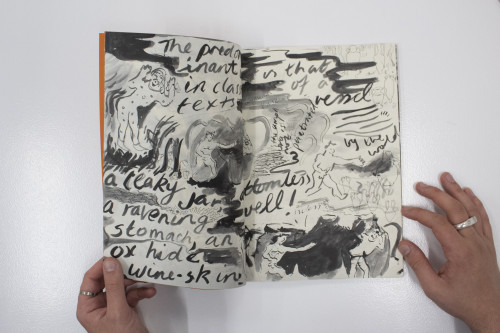 The predom
inant
in class
texts
is that
of a
vessel
by the
world
a leaky Jar
a ravening
stomach, an
ox hide
wine-skin
bottomless
well!